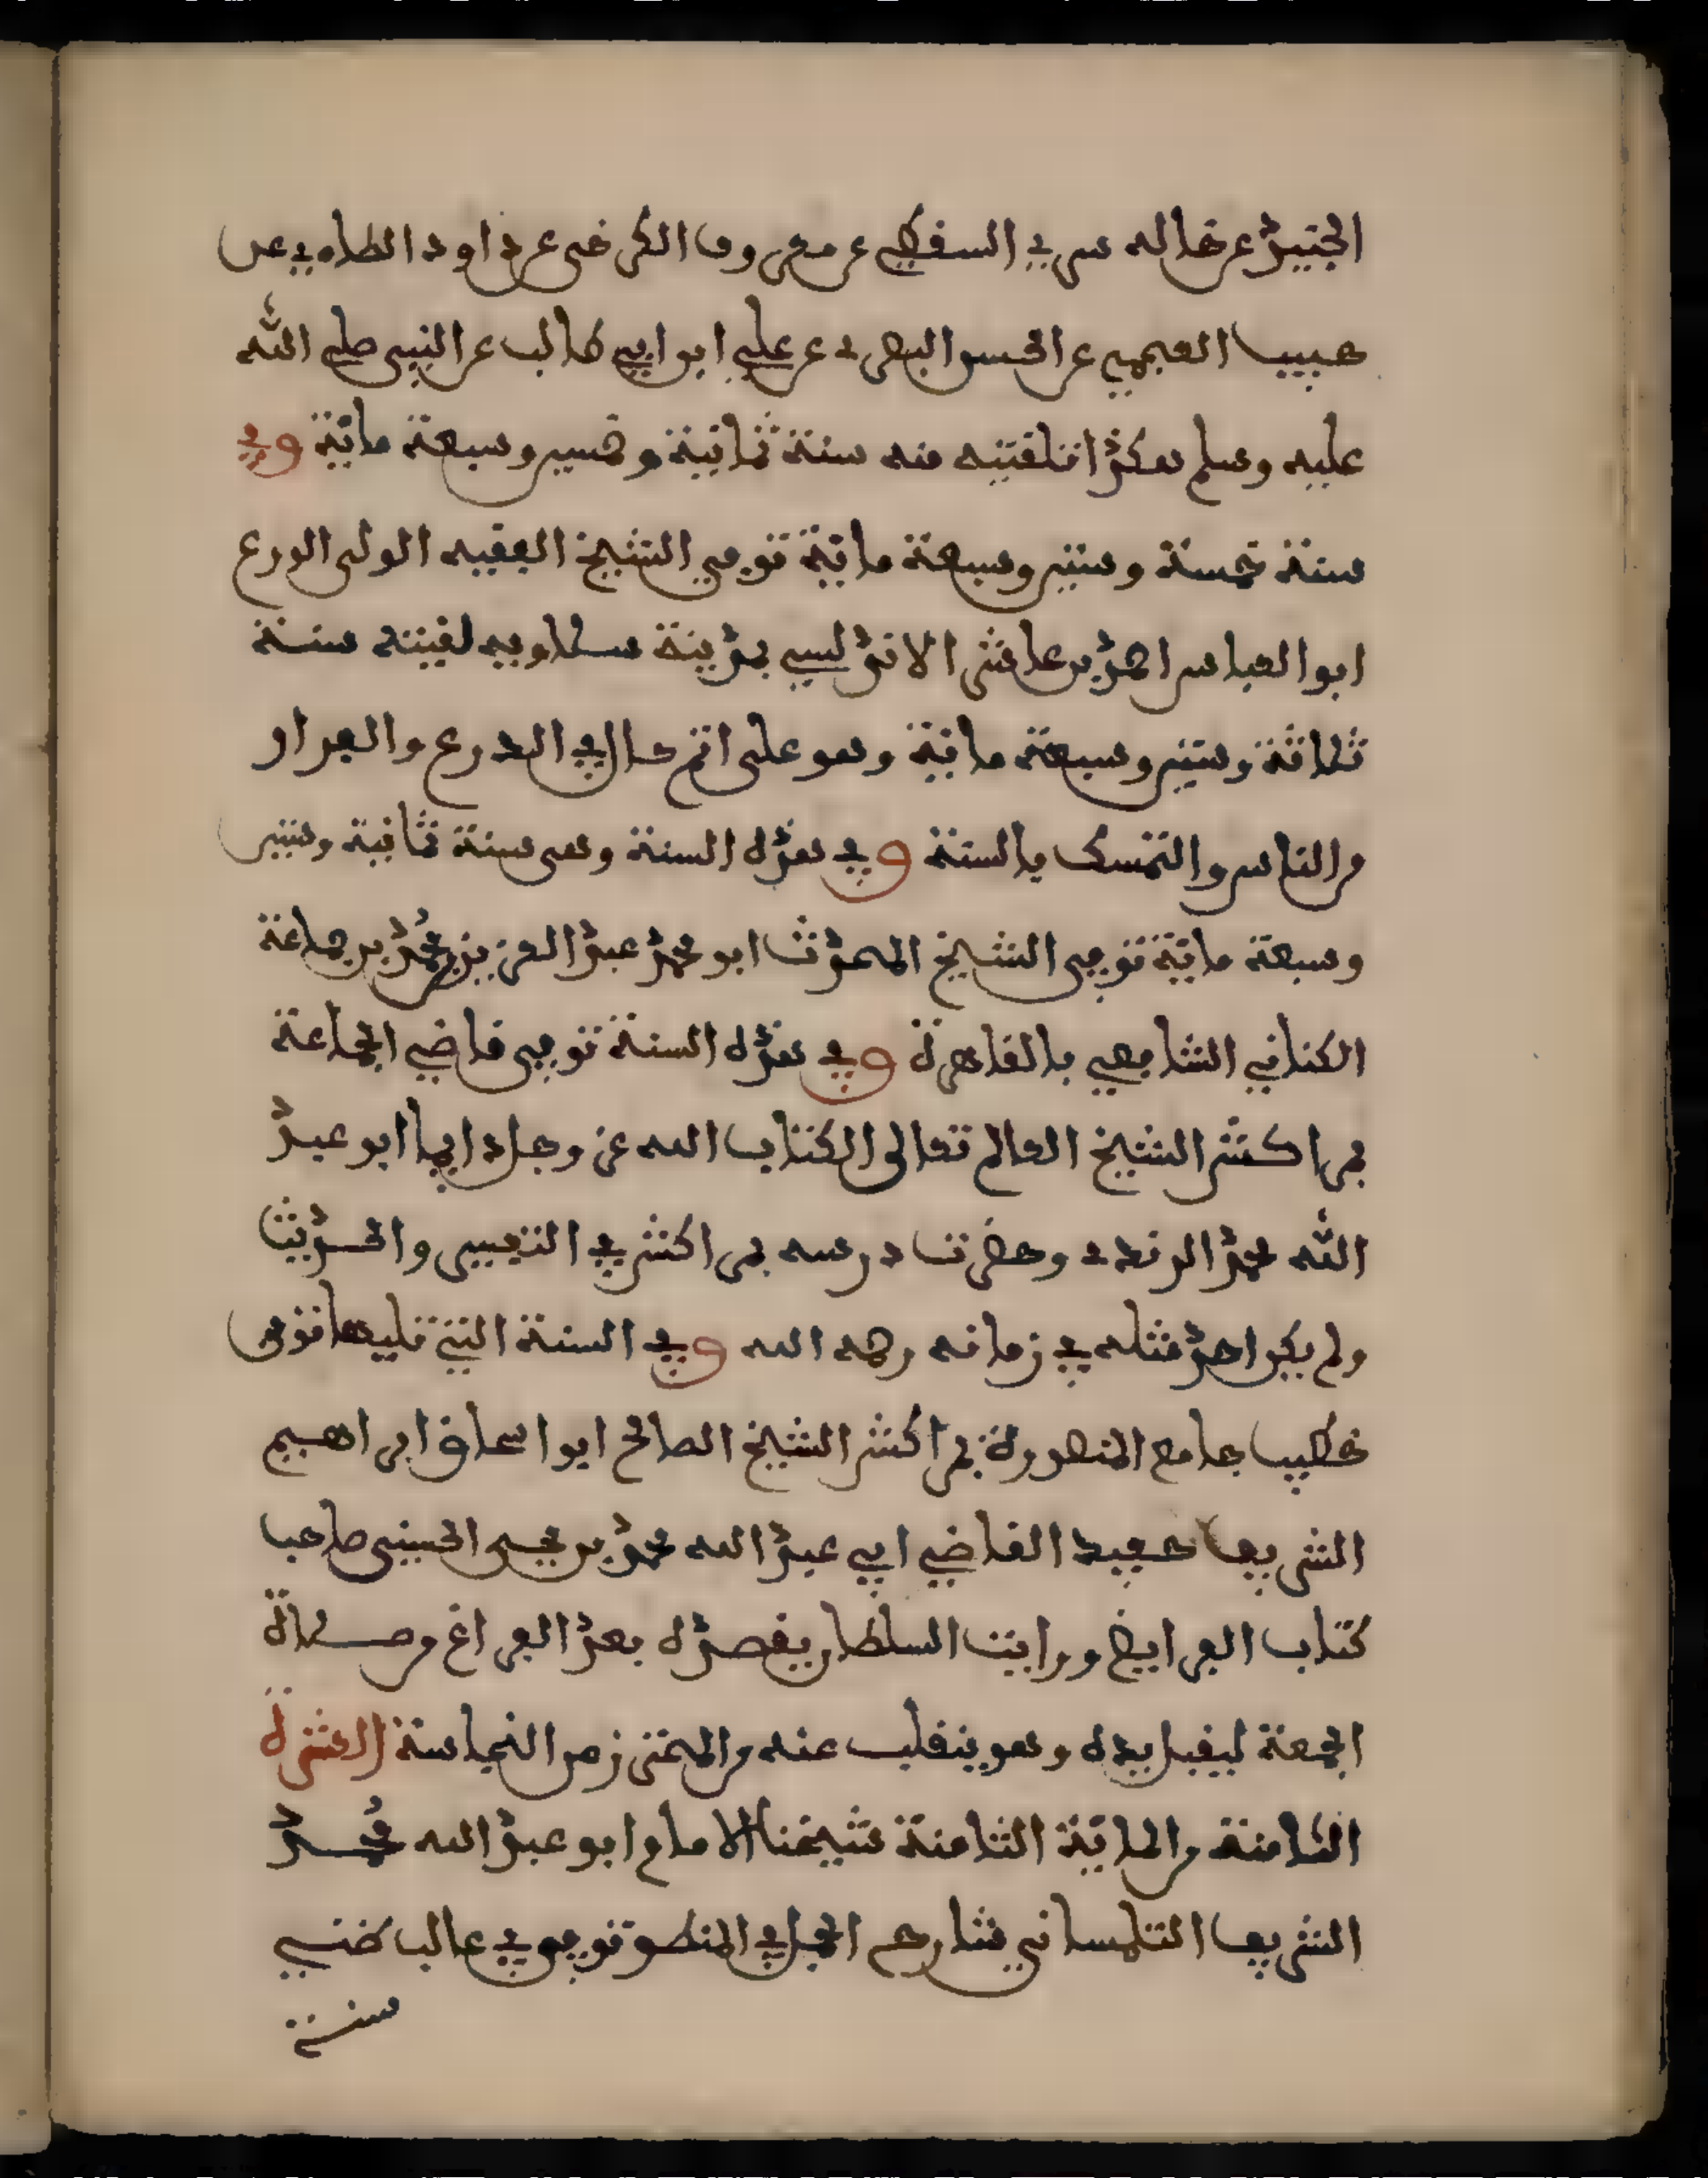 الجنيد عن خاله سري السقطي عن معروف الكرخي عن داود الطاءي عن
حبيب العجمي عن الحسن البصري عن علي ابو ابي طالب عن النبي صلى الله
عليه وسلم هكذا تلقيته منه سنة ثمانية وخمسين وسبعة مائة وفي
سنة خمسة وستين وسبعة مائة توفي الشيخ الفقيه الولى الورع
ابو العباس احمد بن عاشر الاندلسي بمدينة سلا وفيه لقيته سنة
ثلاثة وستين وسبعة مائة وهو على اتم حال في الورع والفرار
من الناس والتمسك بالسنة وفي هذه السنة وهى سنة ثمانية وستين
وسبعة مائة توفى الشيخ المحدث ابو محمد عبد العزيز بن محمد بن جماعة
الكناني الشافعي بالقاهرة وفي هذه السنة توفى قاضي الجماعة
بمراكش الشيخ العالم تعالى الكتاب الله عز وجل دايما ابو عبد
الله محمد الرندي وحضرت درسه بمراكش في التفسير والحديث
ولم يكن احد مثله في زمانه رحمه الله وفي السنة التي تليها توفى
خطيب جامع المنصورة بمراكش الشيخ الصالح ابو اسحاق ابراهيم
الشريف حفيد القاضي ابي عبد الله محمد بن يحيى الحسيني صاحب
كتاب الفرايض ورايت السلطان يقصده بعد الفراغ من صلاة
الجمعة ليقبل يده وهو ينقلب عنه من النجاسة العشرة
الثامنة من المائة الثامنة شيخنا الامام ابو عبد الله محمد
الشريف التلمساني شارح الجمل في المنطق توفي في غالب ظني
سنة